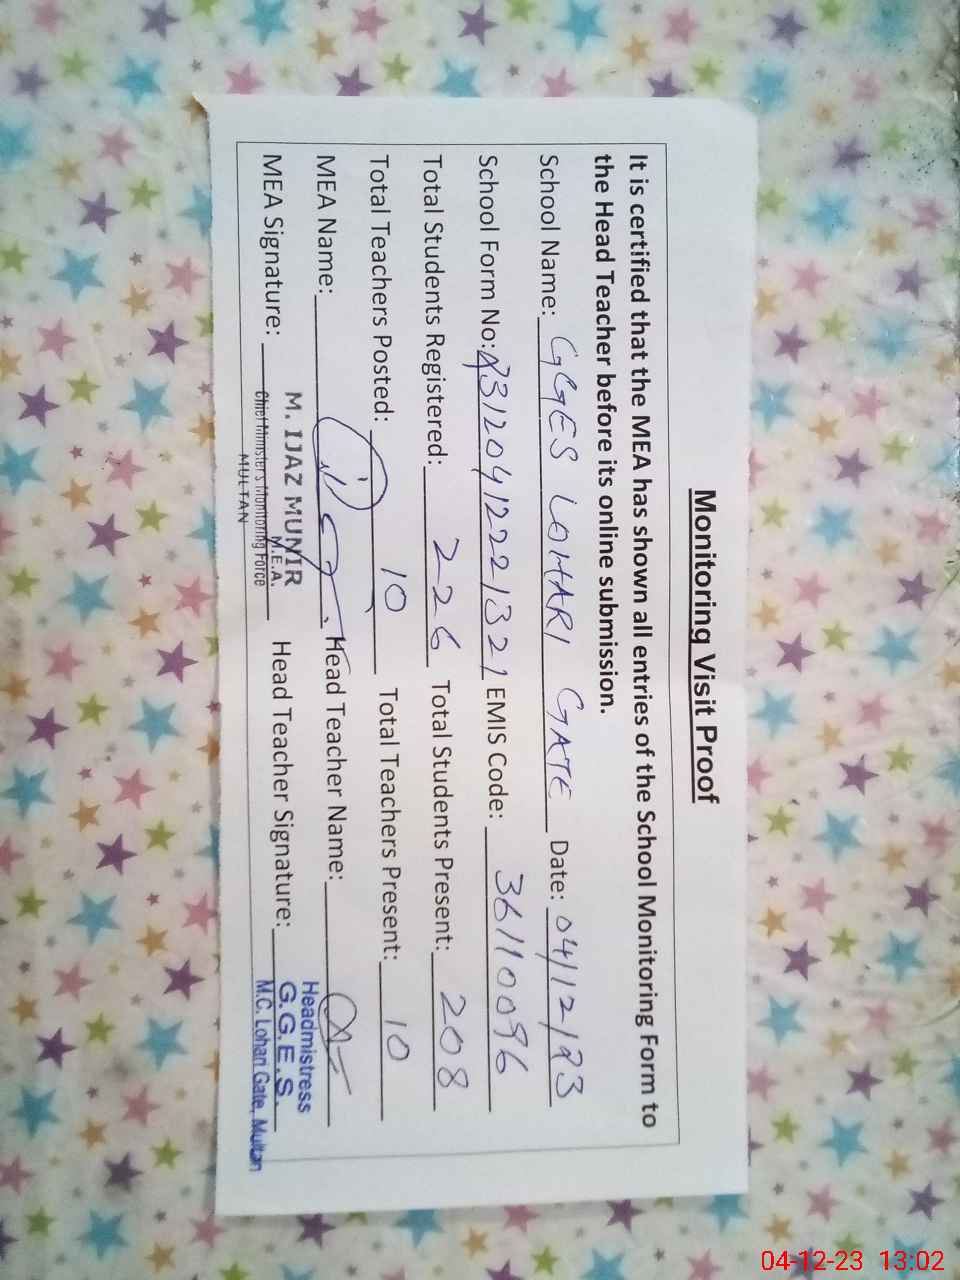 Monitoring Visit Proof
It is certified that the MEA has shown all entries of the School Monitoring Form to
the Head Teacher before its online submission.
School Name: GGES LOHARI GATE Date: 04/12/23
School Form No: 23120412221321 EMIS Code: 36110096
Total Students Registered: 226 Total Students Present: 208
Total Teachers Posted: 10 Total Teachers Present: 10
MEA Name: Head Teacher Name:
MEA Signature: Head Teacher Signature:
M. IJAZ MUNIR
M.E.A.
Chief Minister's Monitoring Force
MULTAN
Headmistress
G.G.E.S.
M.C. Lohari Gate, Multan
04-12-23 13:02